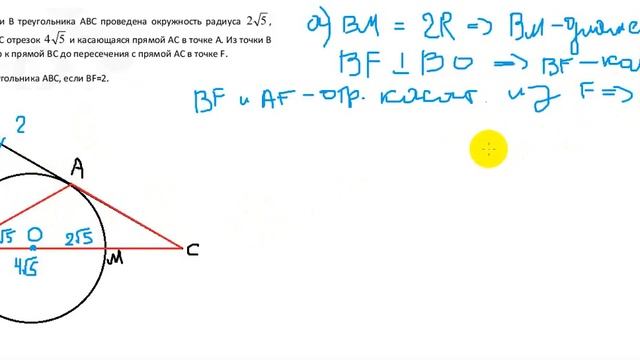 и В треугольника АВС проведена окружность радиуса 2√5 ,
С отрезок 4√5 и касающаяся прямой АС в точке А. Из точки В
к прямой ВС до пересечения с прямой АС в точке F.
угольника АВС, если BF=2.
а) BM = 2R => BM-
BF ⊥ BO => BF-
BF и AF-отр. касат. из F =>
2
A
√5 O 2√5
M C
4√5